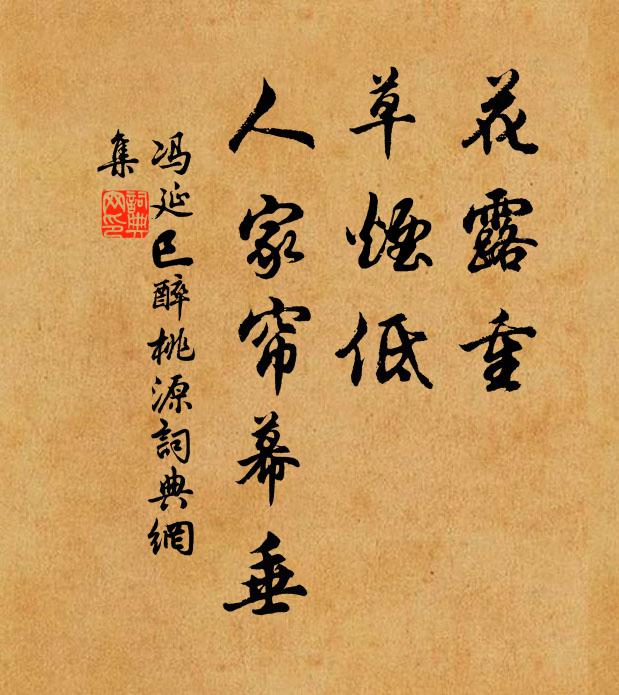 花露重
草煙低
人家帘幕垂
冯延巳醉桃源詞典網
集
詞典网印